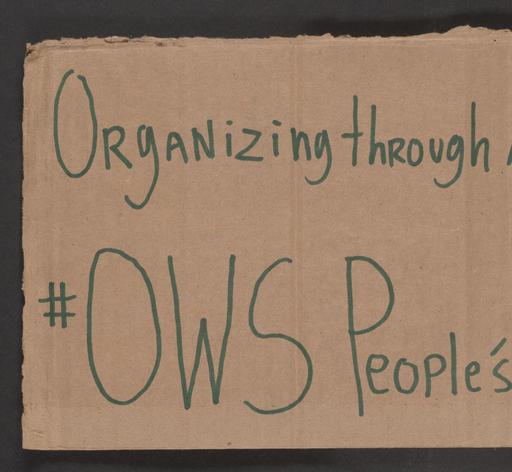 Organizing through
#OWS People's